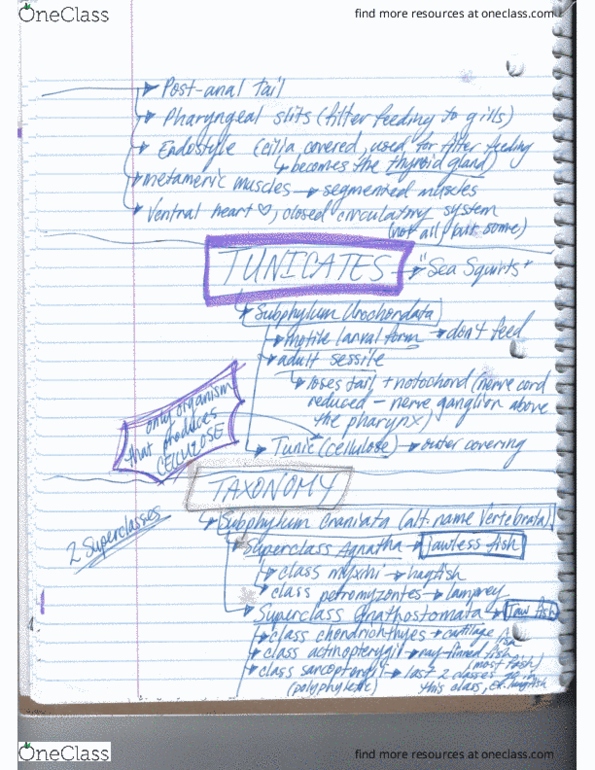 OneClass
find more resources at oneclass.com
Post-anal tail
Pharyngeal slits (filter feeding to gills)
Endostyle (cilia covered, used for filter feeding
becomes the thyroid gland)
metameric muscles → segmented muscles
Ventral heart ♡, closed circulatory system
(not all, but some)
TUNICATES → "Sea Squirts"
Subphylum Urochordata
motile larval form → don't feed
adult sessile
loses tail + notochord (nerve cord
reduced - nerve ganglion above
the pharynx)
only organism
that produces
CELLULOSE
Tunic (cellulose) → outer covering
TAXONOMY
2 Superclasses
Subphylum Craniata (alt. name Vertebrata)
Superclass Agnatha → Jawless fish
class myxini → hagfish
class petromyzontes → lamprey
Superclass Gnathostomata → Jaw fish
class chondrichthyes → cartilage fish
class actinopterygii → ray-finned fish
(most fish)
class sarcopterygii → last 2 classes
(polyphyletic) this class, ex.
OneClass
find more resources at oneclass.com